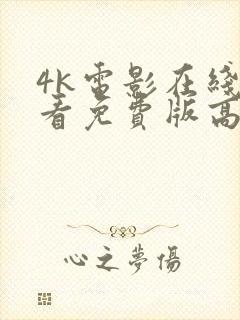 4k電影在綫
看免費版高
心之夢傷